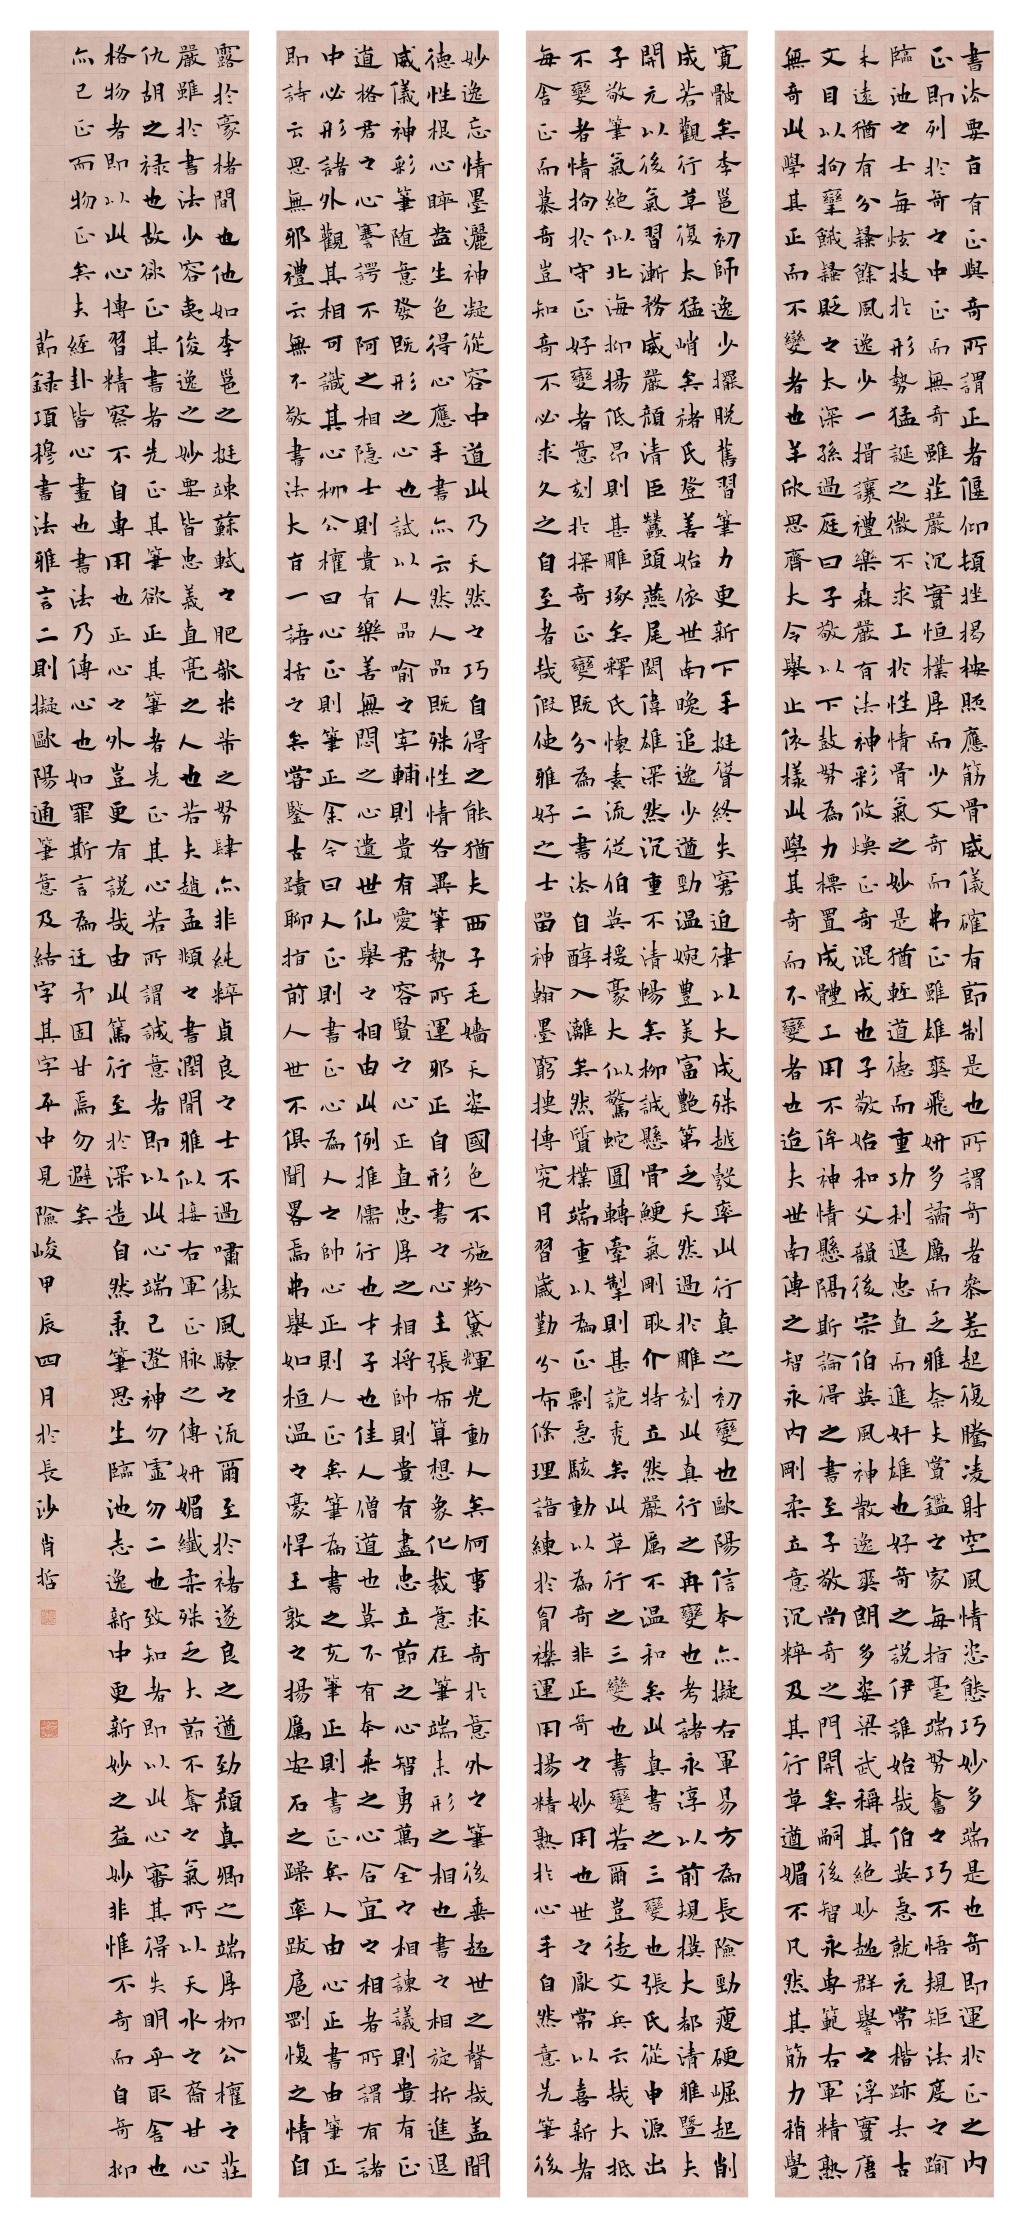 書法要旨有正與奇所謂正者偃仰頓挫揭按照應筋骨威儀確有節制是也所謂奇者參差起復騰凌射空風情姿態巧妙多端是也奇即運於正之內
正即列於奇之中正而無奇雖莊嚴沉實恒樸厚而少文奇而弗正雖雄爽飛妍多譎厲而乏雅奈夫賞鑑之家每指毫端努奮之巧不悟規矩法度之踰
臨池之士每炫技於形勢猛誕之微不求工於性情骨氣之妙是猶輕道德而重功利退忠直而進奸雄也好奇之說伊誰始哉伯英急就元常楷跡去古
未遠猶有分隸餘風逸少一揩讓禮樂森嚴有法神彩攸煥正奇混成也子敬始和父韻後宗伯英風神散逸爽朗多姿梁武稱其絕妙超群譽之浮實唐
文目以拘攣餓隸貶之太深孫過庭曰子敬以下鼓努為力標置成體工用不侔神情懸隔斯論得之書至子敬尚奇之門開矣嗣後智永專範右軍精熟
無奇此學其正而不變者也羊欣思齊大令舉止依樣此學其奇而不變者也迨夫世南傳之智永內剛柔立意沉粹及其行草遒媚不凡然其筋力稍覺
寬骸矣李邕初師逸少擺脫舊習筆力更新下手挺聳終失窘迫律以大成殊越彀率此行真之初變也歐陽信本亦擬右軍易方為長險勁瘦硬崛起削
成若觀行草復太猛峭矣褚氏登善始依世南晚追逸少遒勁溫婉豐美富艷第乏天然過於雕刻此真行之再變也考諸永淳以前規模大都清雅暨夫
開元以後氣習漸務威嚴顏清臣蠶頭燕尾閎偉雄深然沉重不清暢矣柳誠懸骨鯁氣剛耿介特立然嚴厲不溫和矣此真書之三變也張氏從申源出
子敬筆氣絕似北海抑揚低昂則甚雕琢矣釋氏懷素流從伯英援豪大似驚蛇圓轉牽掣則甚詭禿矣此草行之三變也書變若爾豈徒文兵云哉大抵
不變者情拘於守正好變者意刻於探奇正變既分為二書法自醇入漓矣然質樸端重以為正剽急駭動以為奇非正奇之妙用也世之厭常以喜新者
每舍正而慕奇豈知奇不必求久之自至者哉假使雅好之士留神翰墨窮搜博究月習歲勤分布條理諳練於胷襟運用揚精熟於心手自然意先筆後
妙逸忘情墨灑神凝從容中道此乃天然之巧自得之能猶夫西子毛嬙天姿國色不施粉黛輝光動人矣何事求奇於意外之筆後垂超世之聲哉盖聞
德性根心睟盎生色得心應手書亦云然人品既殊性情各異筆勢所運邪正自形書之心主張布算想象化裁意在筆端未形之相也書之相旋折進退
威儀神彩筆隨意發既形之心也試以人品喻之宰輔則貴有愛君容賢之心正直忠厚之相將帥則貴有盡忠立節之心智勇萬全之相諫議則貴有正
道格君之心謇諤不阿之相隱士則貴有樂善無悶之心遺世仙舉之相由此例推儒行也才子也佳人僧道也莫不有本來之心合宜之相者所謂有諸
中必形諸外觀其相可識其心柳公權曰心正則筆正余今曰人正則書正心為人之帥心正則人正矣筆為書之充筆正則書正矣人由心正書由筆正
即詩云思無邪禮云無不敬書法大旨一語括之矣嘗鑒古蹟聊指前人世不俱聞畧焉弗舉如桓溫之豪悍王敦之揚厲安石之躁率跋扈剛愎之情自
露於豪楮間也他如李邕之挺竦蘇軾之肥欹米芾之努肆亦非純粹貞良之士不過嘯傲風騷之流爾至於褚遂良之遒勁顏真卿之端厚柳公權之莊
嚴雖於書法少容夷俊逸之妙要皆忠義直亮之人也若夫趙孟頫之書潤間雅似接右軍正脉之傳妍媚纖柔殊乏大節不奪之氣所以天水之裔甘心
仇胡之祿也故欲正其書者先正其筆欲正其筆者先正其心若所謂誠意者即以此心端己澄神勿虛勿二也致知者即以此心審其得失明乎取舍也
格物者即以此心博習精察不自專用也正心之外豈更有說哉由此篤行至於深造自然秉筆思生臨池志逸新中更新妙之益妙非惟不奇而自奇抑
亦己正而物正矣夫經卦皆心畫也書法乃傳心也如罪斯言為迂矛固甘焉勿避矣
節録項穆書法雅言二則擬歐陽通筆意及結字其字平中見險峻甲辰四月於長沙肖哲